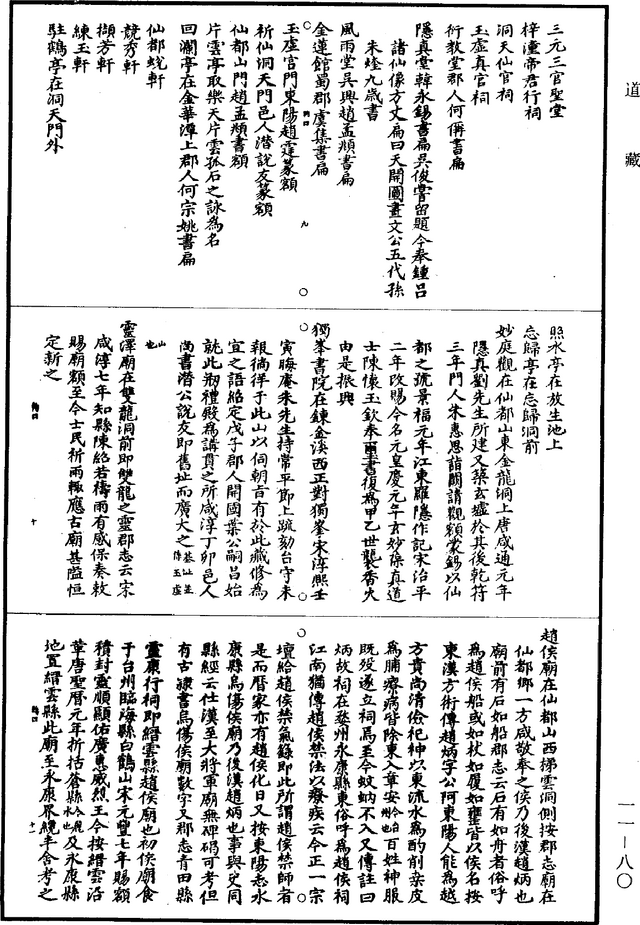 道藏
三元三官聖堂
梓潼帝君行祠
洞天仙官祠
玉虛真官祠
衍教堂郡人何偁書扁
隱真堂韓永錫書扁吳俊嘗留題今奉鍾呂
諸仙像方丈扁曰天開圖畫文公五代孫
朱煃九歲書
風雨堂吳興趙孟頫書扁
金蓮館蜀郡虞集書扁
玉虛宮門東陽趙霆篆額
祈仙洞天門邑人潛說友篆額
仙都山門趙孟頫書額
片雲亭取樂天片雲孤石之詠為名
回瀾亭在金華潭上郡人何宗姚書扁
仙都蛻軒
競秀軒
擷芳軒
練玉軒
駐鶴亭在洞天門外
照水亭在放生池上
忘歸亭在忘歸洞前
妙庭觀在仙都山東金龍洞上唐咸通元年
隱真劉先生所建又築玄壇於其後乾符
三年門人朱惠思詣闕請觀額蒙錫以仙
都之號景福元年江東羅隱作記宋治平
二年改賜今名元皇慶元年玄妙葆真道
士陳懷玉欽奉璽書復為甲乙世襲香火
由是振興
獨峯書院在鍊金溪西正對獨峯宋淳熙壬
寅晦庵朱先生持常平節上疏劾台守未
報徜徉于此山以伺朝旨有於此藏修為
宜之語紹定戊子郡人開國葉公嗣昌始
就此剏禮殿為講貫之所咸淳丁卯邑人
尚書潛公說友即舊址而廣大之基山並係玉虛
山也
靈澤廟在雙龍洞前即雙龍之靈郡志云宋
咸淳七年知縣陳紹若禱雨有感保奏敕
賜廟額至今士民祈雨輒應古廟甚隘恒
定新之
趙侯廟在仙都山西梯雲洞側按郡志廟在
仙都鄉一方咸敬奉之侯乃後漢趙炳也
廟前有石如船郡志云石有如舟者俗呼
為趙侯船或如杖如履如甕皆以侯名按
東漢方術傳趙炳字公阿東陽人能為越
方貴尚清儉祀神以東流水為酌削桑皮
為脯療病皆除東入章安今台州也百姓神服
既歿遂立祠焉至今蚊蚋不入又傳註曰
炳故祠在婺州永康縣東俗呼為趙侯祠
江南猶傳趙侯禁法以療疾云今正一宗
壇給趙侯禁氣籙即此所謂趙侯禁師者
是而曆家亦有趙侯化日又按東陽志永
康縣烏傷侯廟乃後漢趙炳也事與史同
縣經云仕漢至大將軍廟無碑碣可考但
有古隸書烏傷侯廟數字又郡志青田縣
靈康行祠即縉雲縣趙侯廟也初侯廟食
于台州臨海縣白鶴山宋元豐七年賜額
積封靈順顯佑廣惠威烈王今按縉雲沿
革唐聖曆元年折括蒼縣今麗水也及永康縣
地置縉雲縣此廟至永康界纔半舍考之
一一－八〇